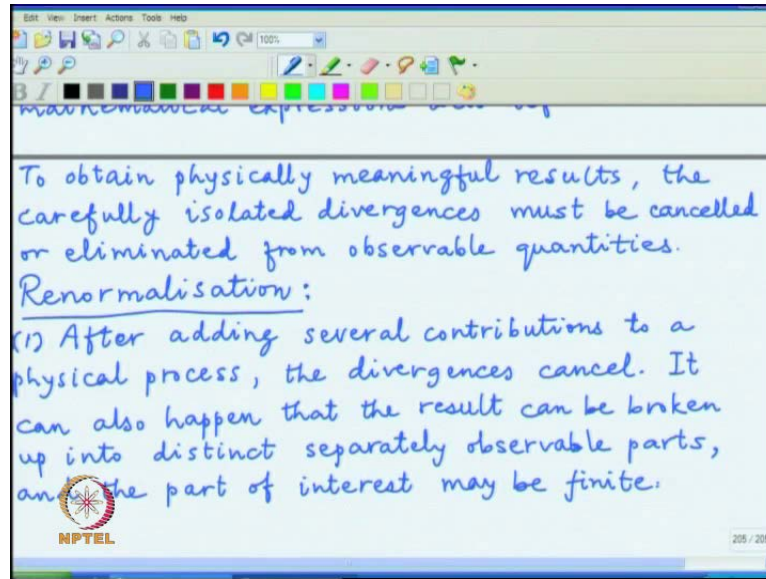 Edit View Insert Actions Tools Help
100%
mathematical expressions
To obtain physically meaningful results, the
carefully isolated divergences must be cancelled
or eliminated from observable quantities.
Renormalisation:
(1) After adding several contributions to a
physical process, the divergences cancel. It
can also happen that the result can be broken
up into distinct separately observable parts,
and the part of interest may be finite.
NPTEL
205 / 205